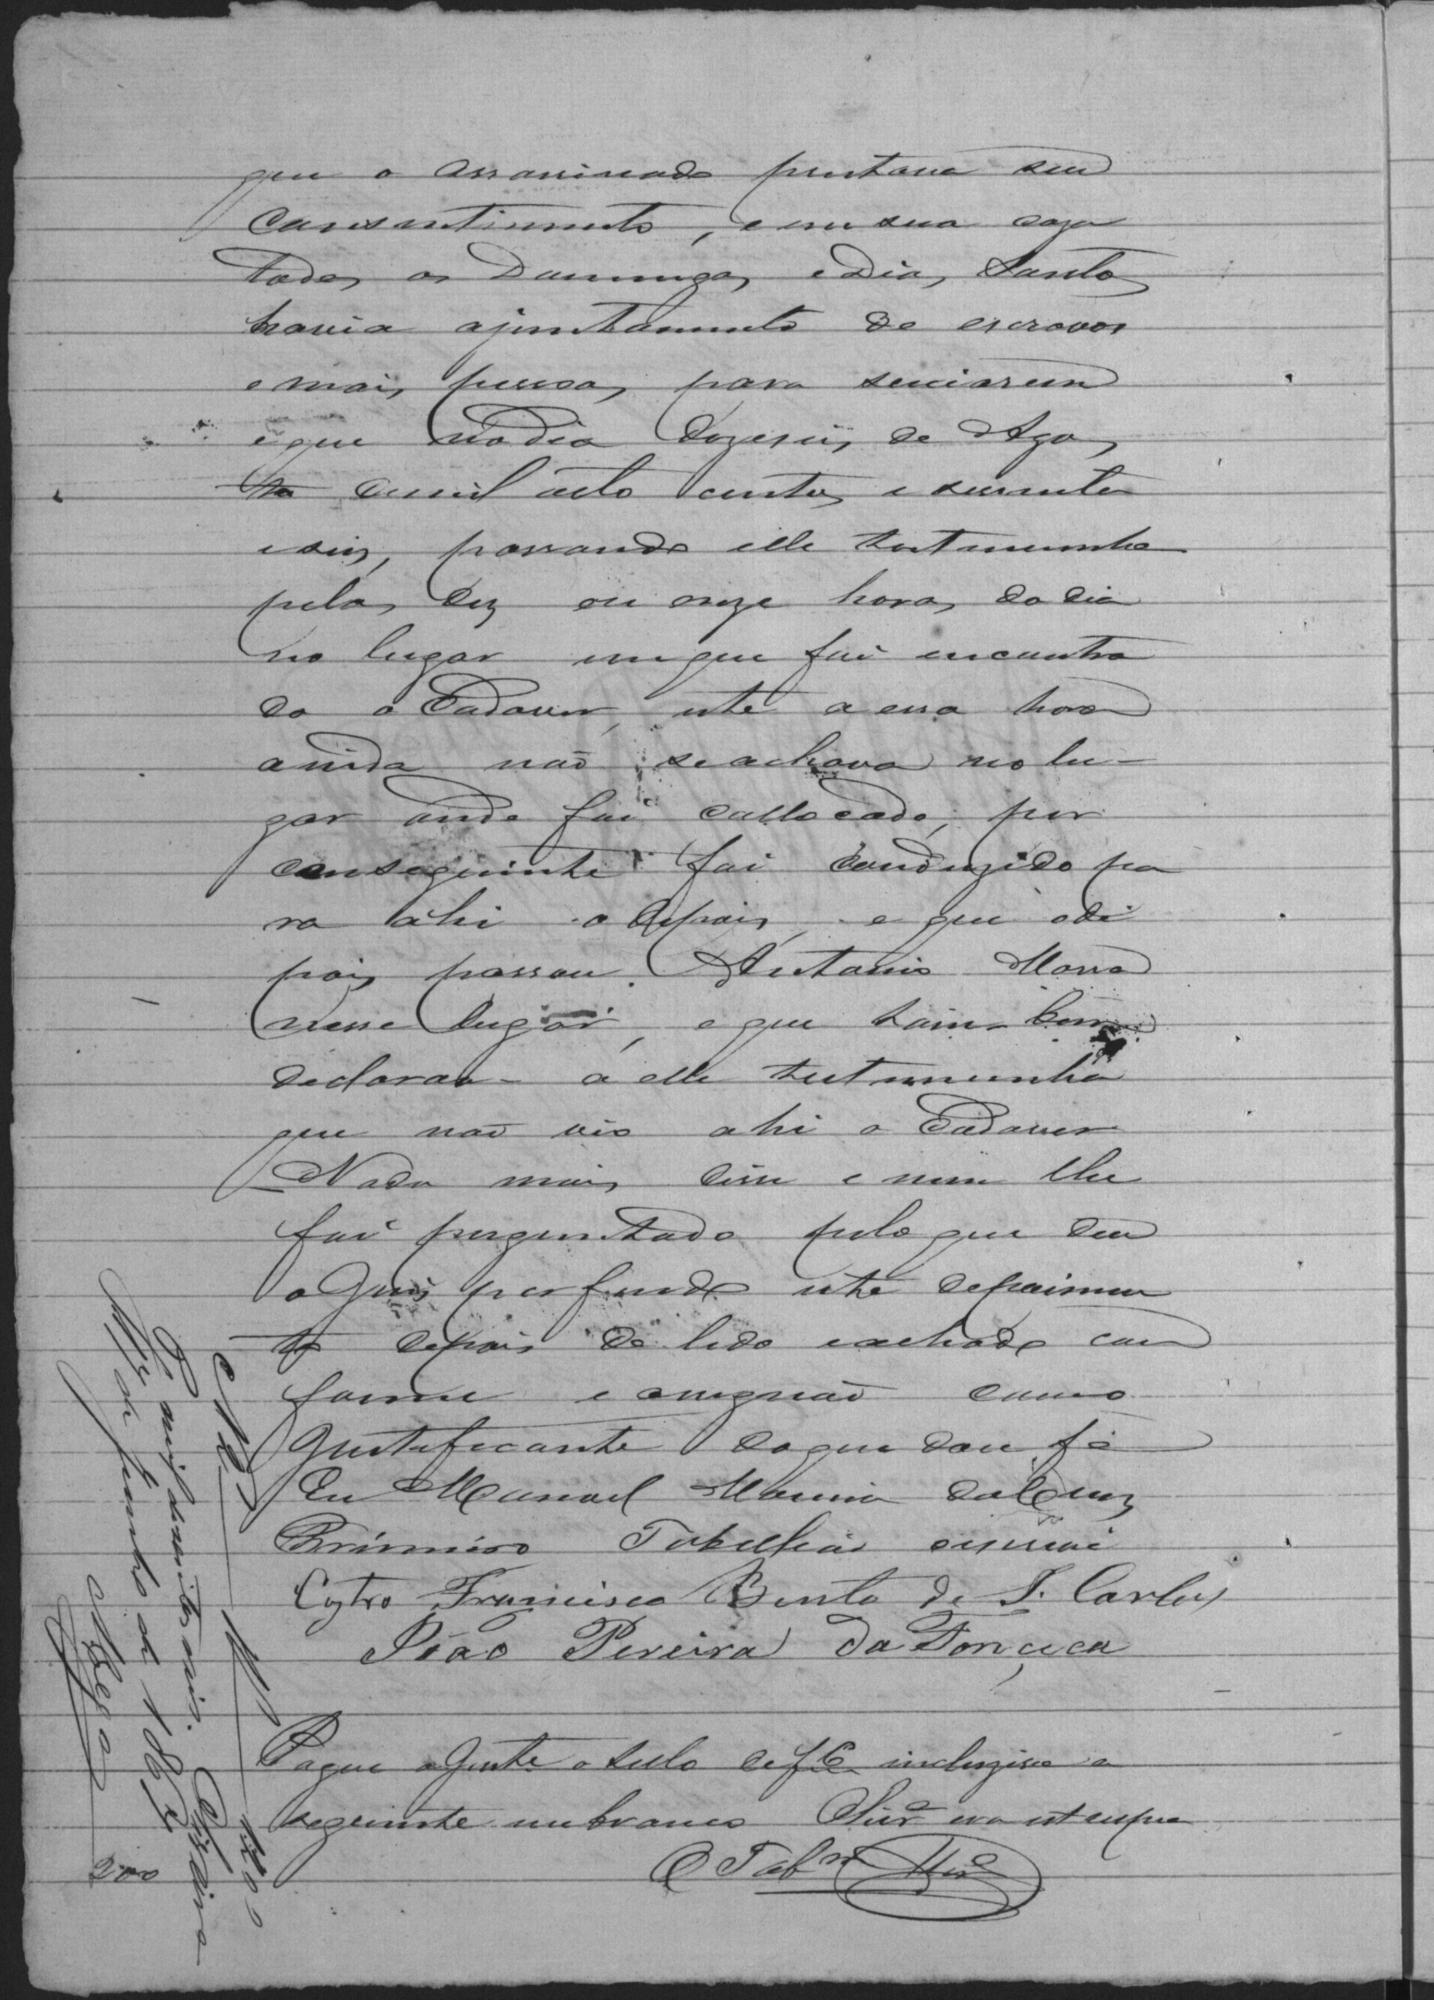 que o assassinado prestava seu
consentimento, e em sua caza
todos os Domingos, e Dias Santos
havia ajuntamento de escravos
e mais pessoas, para seciarem
e que no dia dezeseis de Agos
to de mil oito centos e secenta
e seis, passando elle testemunha
pelas dez ou onze horas do dia
no lugar em que foi encontra
do o Cadaver, este a essa hora
ainda não se achava no lu-
gar onde foi collocado, por
conseguinte foi conduzido pa
ra ahi o depois, e que o de
pois passou Antonio Maria
nesse lugar, e que tam bem
declarou a elle testemunha
que não vio ahi o Cadaver
Nada mais disse e nem lhe
foi perguntado pelo que deu
o Juis por findo este depoimen
to depois de lido e achado con
forme e assignão como
Justificante do que dou fé
Eu Manoel Moreira da Cruz
Primeiro Tabellião escrevi
Castro Francisco Bento de S. Carlos
João Pereira da Fonçeca
Pague a Juste o sello de f 6 incluzive a
seguinte em branco
O Tab.m
N. 1 200
P. mil duzentos reis.
de Junho de 1867
200